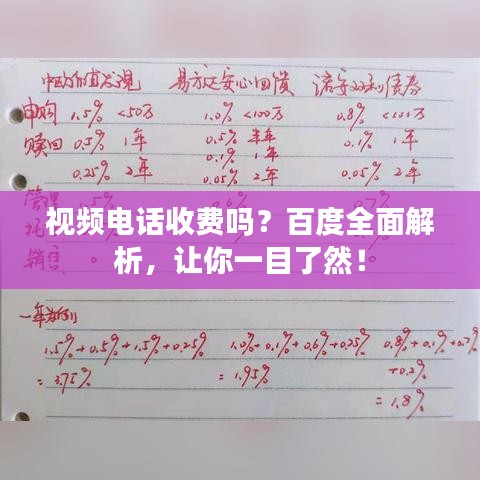 中欧价值发现 易方达安心回馈 诺安双利债券
申购 1.5% <50万 1.0% <100万 0.8% <100万
赎回 0.5% 1年 0.5% 半年 0.1% 1年
0.1% 1年
0.25% 2年 0.05% 2年 0.05% 2年
视频电话收费吗?百度全面解
析,让你一目了然!
一年为例
1.5%+0.5%+1.5%+0.25% 1.0%+0.1%+0.6%+0.25% 0.8%+0.1%+0.7%
+0.2%
=3.75% =1.95%
=1.8%